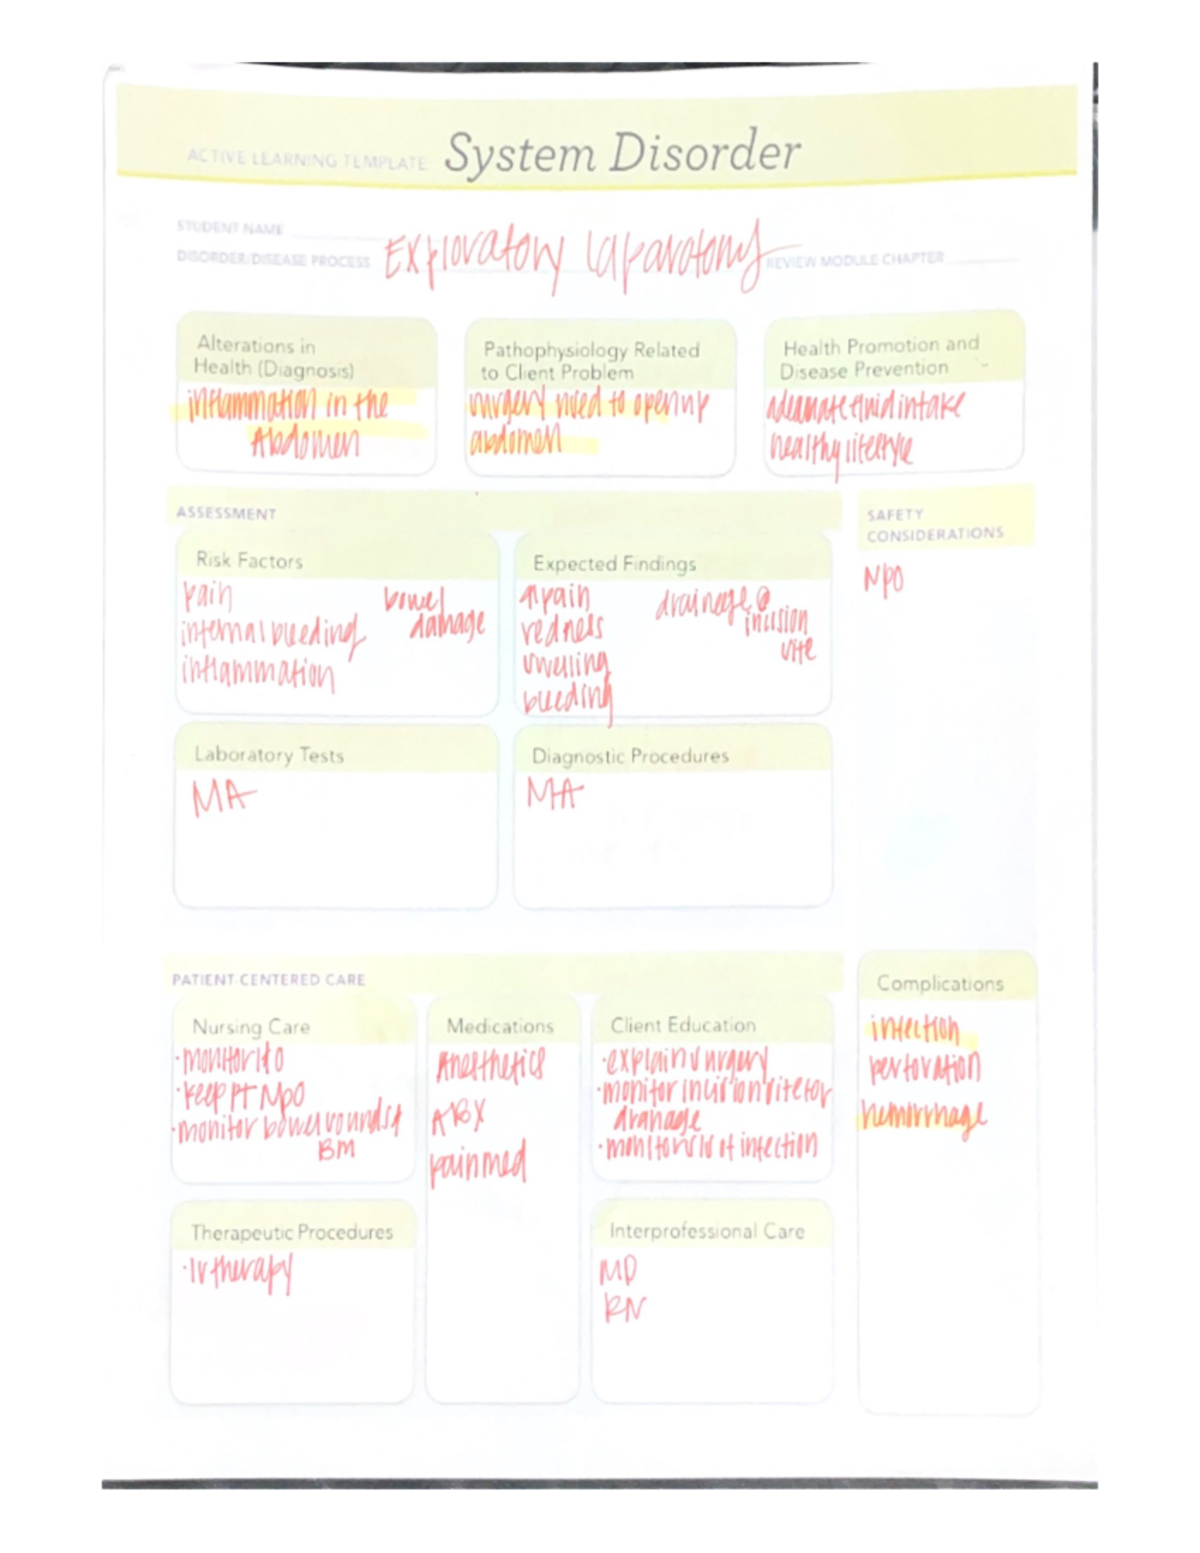 ACTIVE LEARNING TEMPLATE: System Disorder
STUDENT NAME
DISORDER/DISEASE PROCESS Exploratory Laparotomy REVIEW MODULE CHAPTER
Alterations in
Health (Diagnosis)
inflammation in the
Abdomen
Pathophysiology Related
to Client Problem
surgery used to open up
abdomen
Health Promotion and
Disease Prevention
adequate fluid intake
healthy lifestyle
ASSESSMENT
SAFETY
CONSIDERATIONS
NPO
Risk Factors
pain
internal bleeding
inflammation
bowel
damage
Expected Findings
pain
redness
swelling
bleeding
drainage @
incision
site
Laboratory Tests
Diagnostic Procedures
PATIENT-CENTERED CARE
Complications
infection
perforation
hemorrhage
Nursing Care
·monitor I&O
·keep PT NPO
·monitor bowel sounds &
BM
Medications
Anesthetics
ABX
pain med
Client Education
·explain surgery
·monitor incision site for
dranage
·monitor s/s of infection
Therapeutic Procedures
·IV therapy
Interprofessional Care
MD
RN